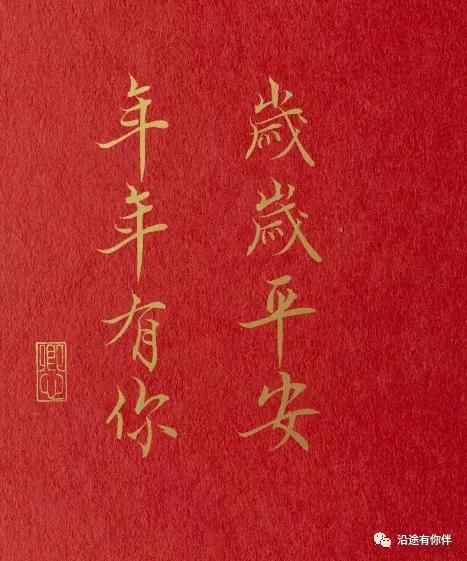 歲歲平安
年年有你
卿心
沿途有你伴